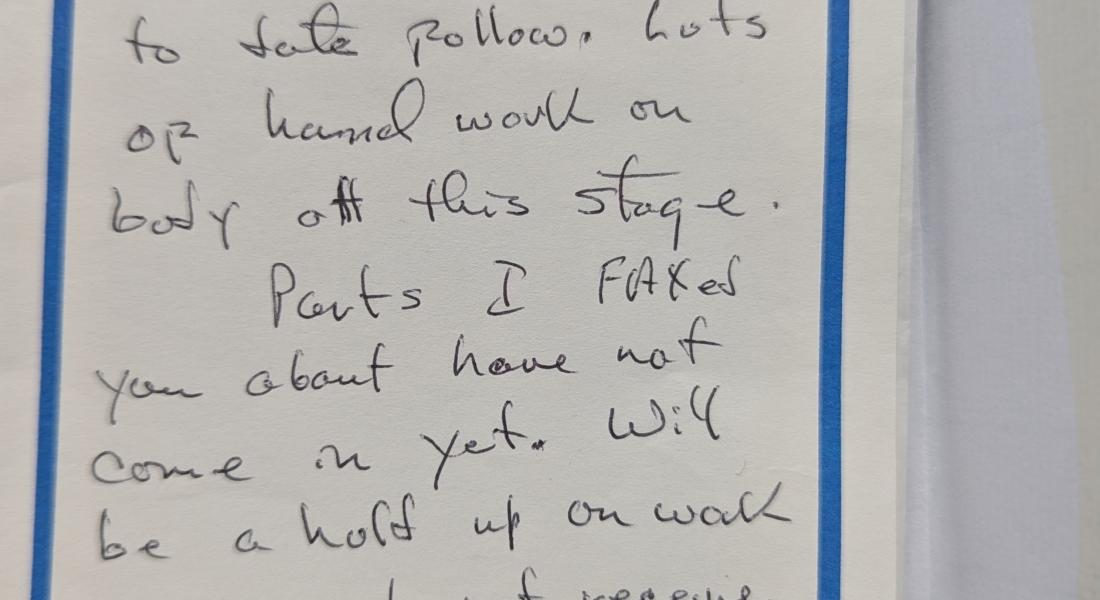 to date follow. Lots
of hand work on
body att this stage.
Parts I FAXed
you about have not
come in yet. Will
be a hold up on work